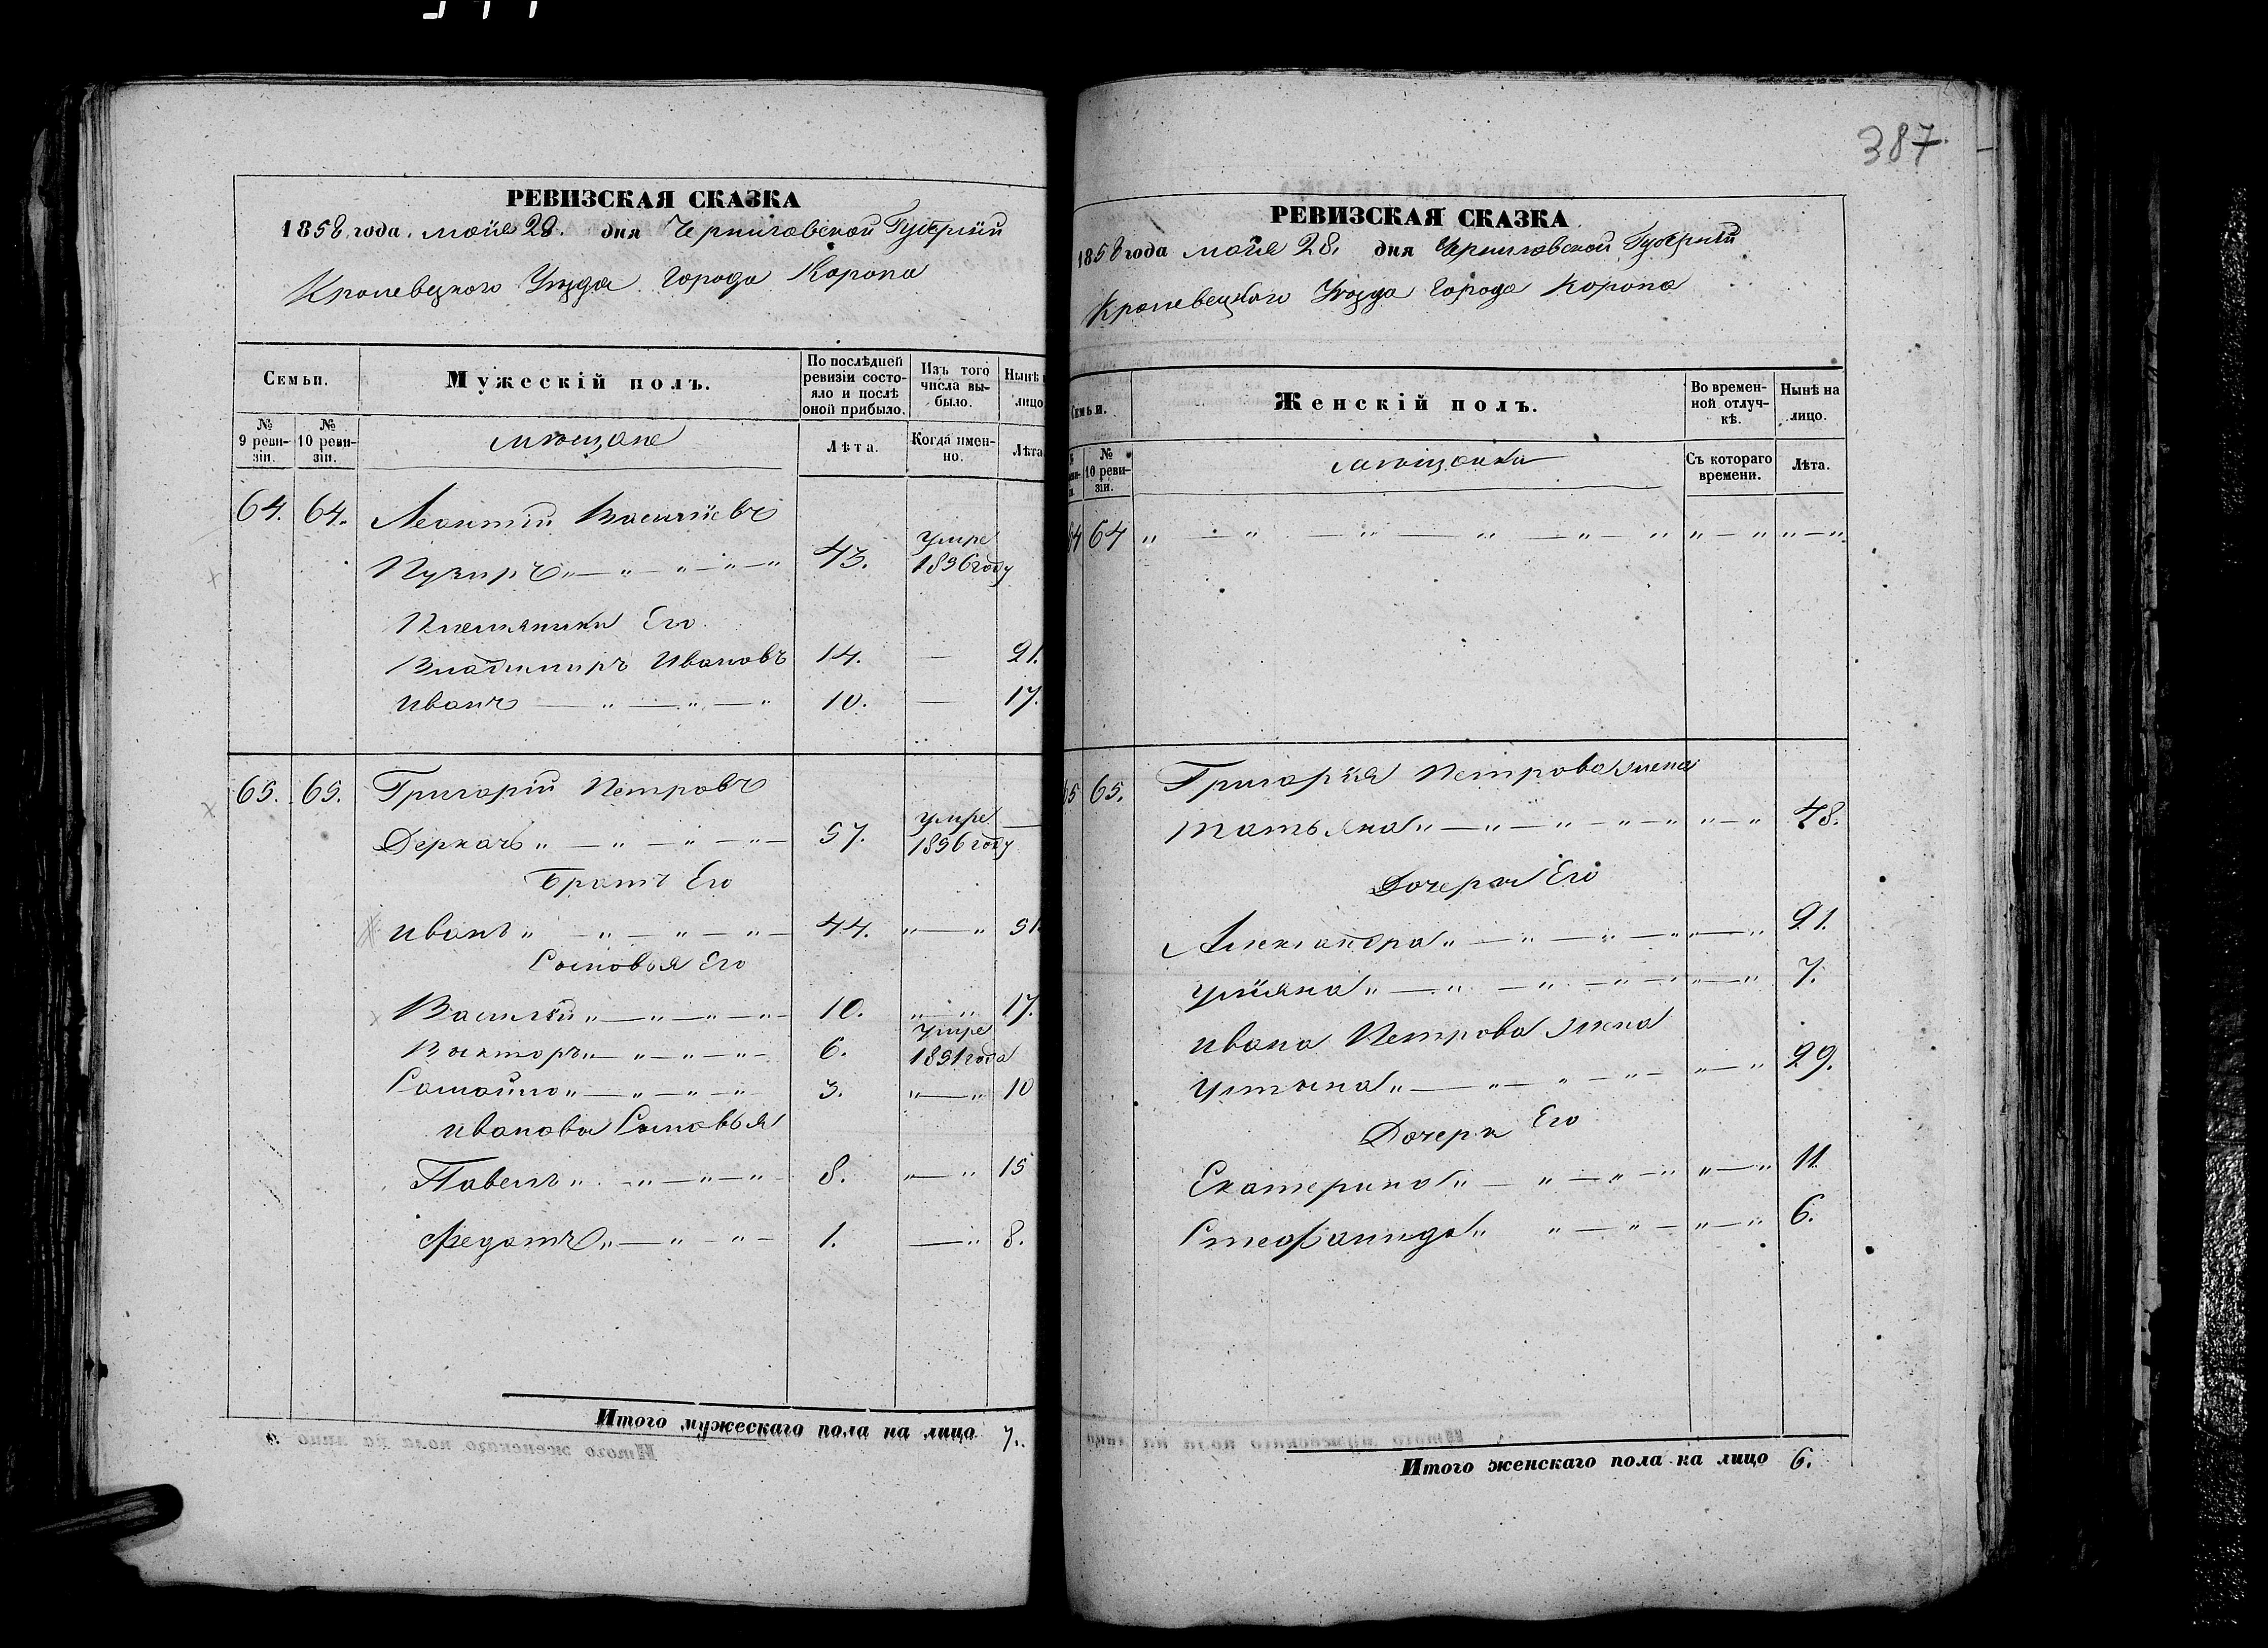 387
РЕВИЗСКАЯ СКАЗКА
1858 года. мая 28. дня Черниговской Губернїи
Кролевецкого Уѣзда города Коропа
Семьи.
Мужескій полъ.
По послѣдней ревизіи состояло и послѣ оной прибыло.
Изъ того числа выбыло.
Нынѣ на лицо
№ 9 ревизіи.
№ 10 ревизіи.
мѣщане
Лѣта.
Когда именно.
Лѣта
64. 64. Леонтій Васильевъ
Пузиръ „ — „ — „ — „ — „ 43. умре 1856 году
Племянники Его
Владимиръ Ивановъ 14. — 21.
Иванъ — „ — „ — „ 10. — 17.
65. 65. Григорій Петровъ
Деркачъ „ — „ — „ — „ — 57. умре 1856 году —
Братъ Его
Иванъ „ — „ — „ — „ — 44. „ — „ 51
Сыновья Его
Василій „ — „ — „ — „ — 10. „ — „ 17.
Викторъ „ — „ — „ — „ — 6. умре 1851 года
Самойло „ — „ — „ — „ 3. „ — „ 10
Ивановы Сыновья
Павелъ „ — „ — „ — „ 8. „ — „ 15
Федотъ „ — „ — „ — 1. — „ 8.
Итого мужескаго пола на лицо 7.
РЕВИЗСКАЯ СКАЗКА
1858 года мая 28. дня Черниговской Губерніи
Кролевецкого Уѣзда города Коропа
Семьи.
Женскій полъ.
Во временной отлучкѣ.
Нынѣ на лицо.
№ 10 ревизіи.
мѣщанки
Съ котораго времени.
Лѣта.
64 64 „ — „ — „ — „ — „ — „ „ — „ „ — „
65 65. Григорія Петрова жена
Татьяна „ — „ — „ — „ — „ „ — „ 48.
Дочери Его
Александра „ — „ — „ — „ — „ 21.
Уліяна „ — „ — „ — „ — „ — „ 7.
Ивана Петрова жена
Устина „ — „ — „ — „ — „ — „ 29.
Дочери Его
Екатерина „ — „ — „ — „ „ — „ 11
Стефанида „ „ — „ — „ — „ 6.
Итого женскаго пола на лицо 6.